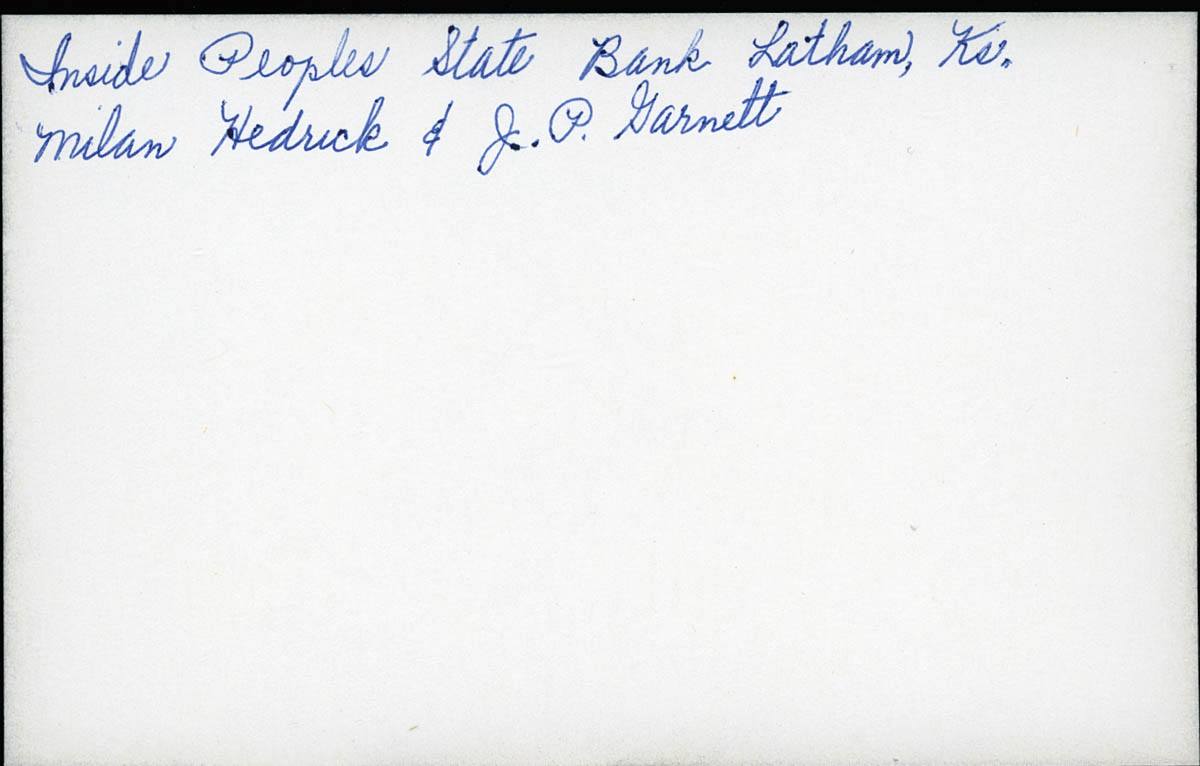 Inside Peoples State Bank Latham, Ks.
Milan Hedrick & J. P. Garnett